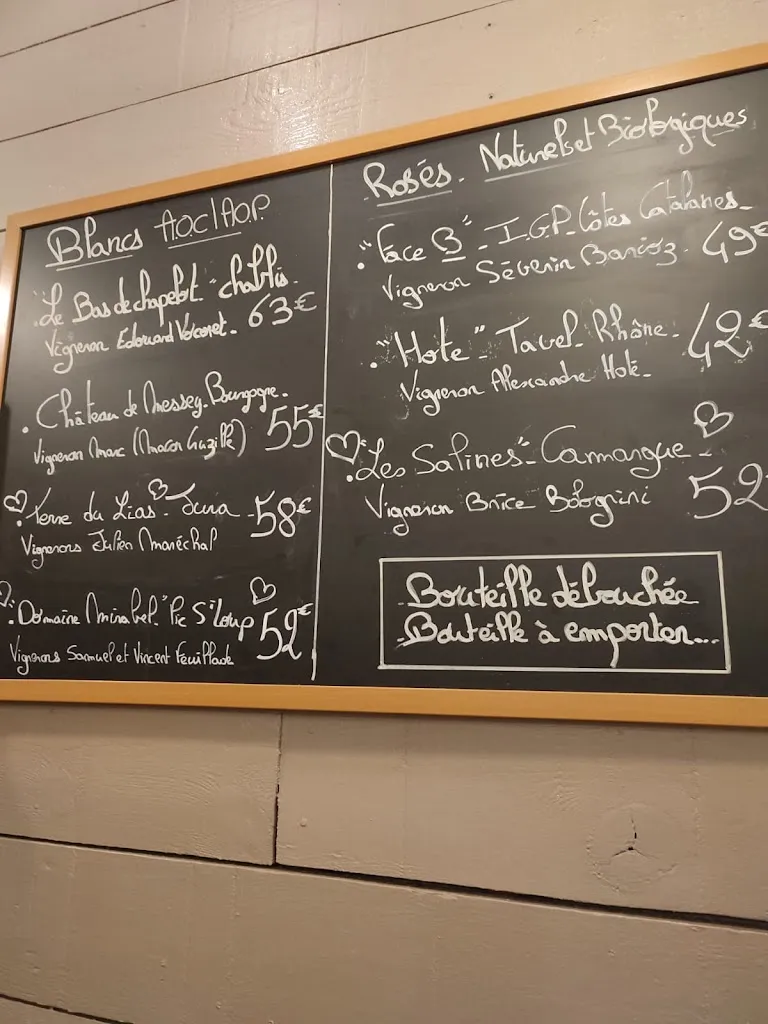 Blancs AOC/AOP
"Le Bas de chapelot" chablis.
Vigneron Edouard Vocoret. 63€
. Château de Messey. Bourgogne.
Vigneron Marc (Macon Cruzille) 55€
Terre du Lias. Jura 58€
Vignerons Julien Maréchal
. Domaine Mirabel. "Pic St Loup" 52€
Vignerons Samuel et Vincent Feuillade
Rosés. Naturels et Biologiques
. "Face B" - I.G.P. Côtes Catalanes -
Vigneron Séverin Barioz. 49€
. "Hote" - Tavel - Rhône - 42€
Vigneron Alexandre Hote -
. "Les Salines" - Cammargue - 52
Vigneron Brice Bolognini
- Bouteille débouchée
- Bouteille à emporter...